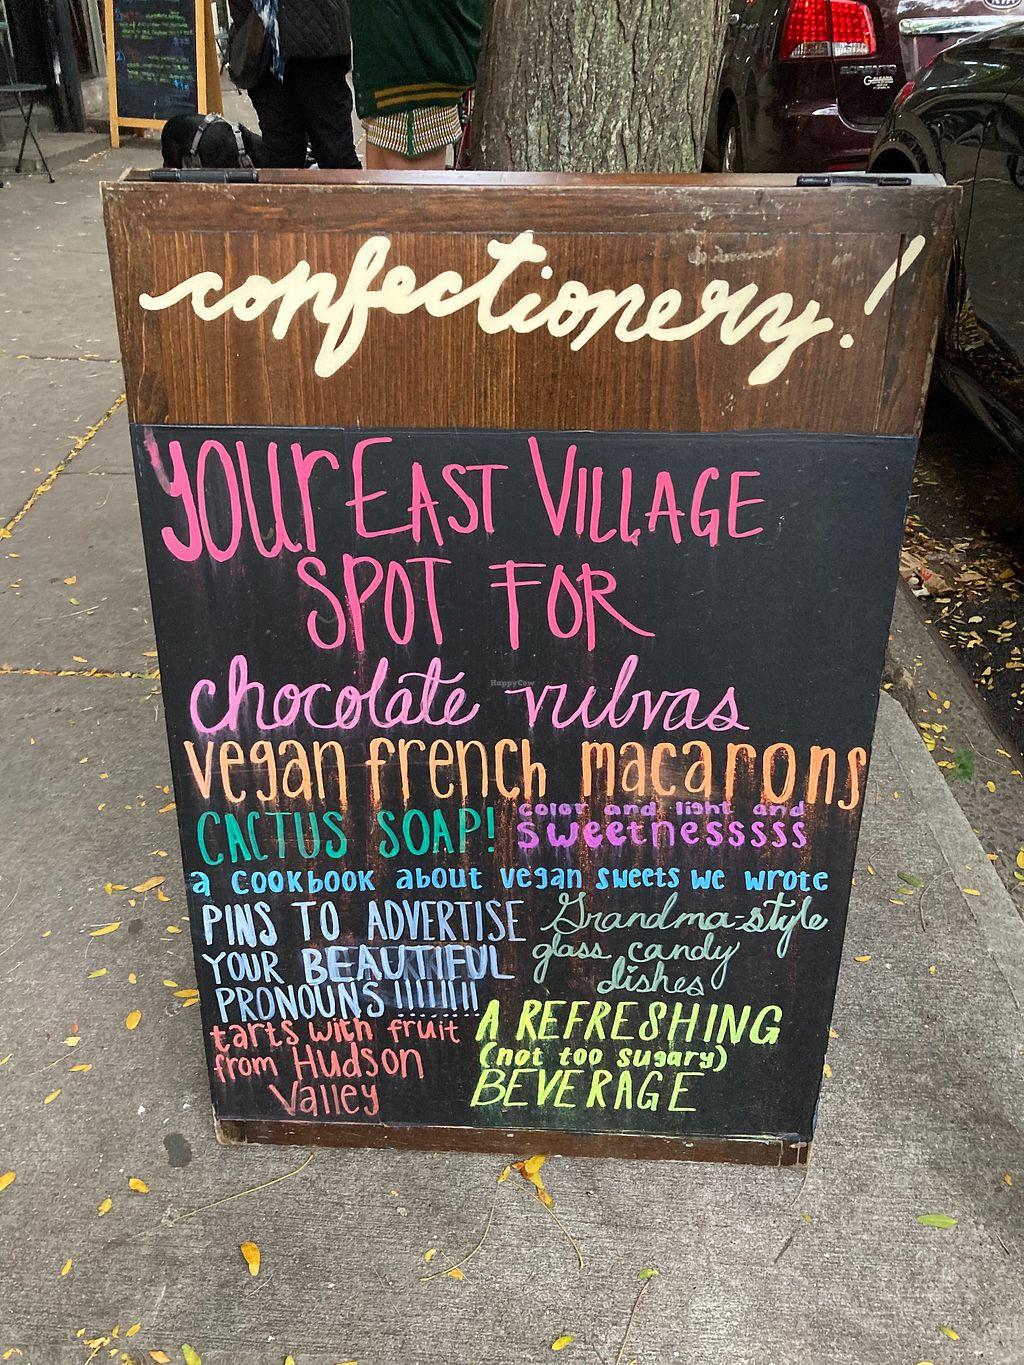 confectionery!
YOUR EAST VILLAGE
SPOT FOR
chocolate vulvas
vegan french macarons
CACTUS SOAP!
color and light and
sweetnesssss
a cookbook about vegan sweets we wrote
PINS TO ADVERTISE
YOUR BEAUTIFUL
PRONOUNS !!!!!!!!
Grandma-style
glass candy
dishes
tarts with fruit
from Hudson
Valley
A REFRESHING
(not too sugary)
BEVERAGE
HappyCow